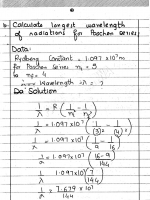 Calculate longest wavelength
of radiations for Paschen series
Data:
Rydberg Constant = 1.097×10⁷m
for Paschen Series n₁ = 3
n₂ = 4
Wavelength λ = ?
Solution
1/λ = R (1/n² - 1/n²)
1/λ = 1.097×10⁷ (1/(3)² - 1/(4)²)
1/λ = 1.097×10⁷ (1/9 - 1/16)
1/λ = 1.097×10⁷ (16-9/144)
1/λ = 1.097×10⁷ (7/144)
1/λ = 7.679×10⁷/144